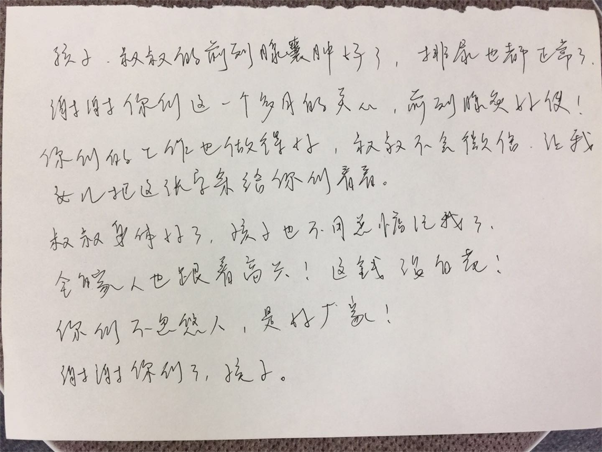 孩子．叔叔的前列腺囊肿好了，排尿也都正常了．
谢谢你们这一个多月的关心，前列腺灸好使！
你们的工作也做得好，叔叔不会微信．让我
女儿把这张字条给你们看看。
叔叔身体好了，孩子也不用总惦记我了．
全家人也跟着高兴！这钱没白花！
你们不忽悠人，是好厂家！
谢谢你们了，孩子。